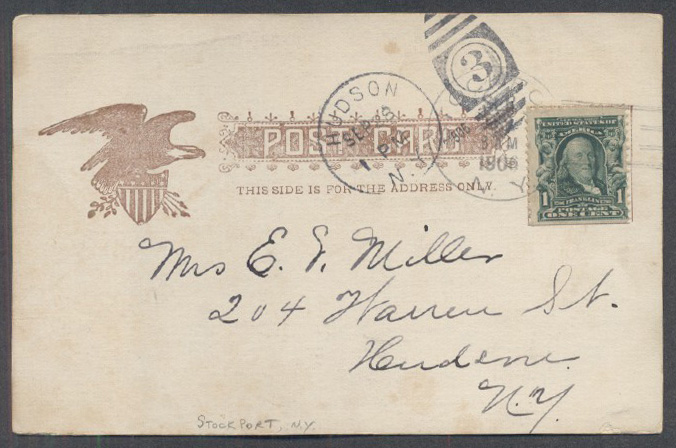 3
HUDSON
SEP 28
1 PM
N.Y.
AM
1906
N.Y.
POST CARD
THIS SIDE IS FOR THE ADDRESS ONLY.
UNITED STATES OF AMERICA
FRANKLIN
1 POSTAGE 1
ONE CENT
Mrs E. F. Miller
204 Warren St.
Hudson
N.Y.
STOCKPORT, N.Y.